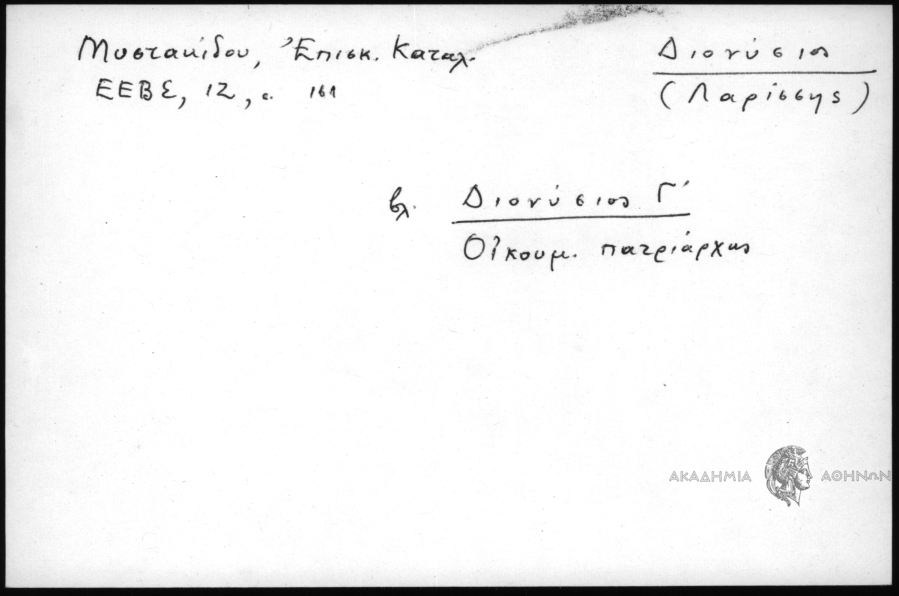 Μυστακίδου, Ἐπισκ. Καταλ.
ΕΕΒΣ, 12, σ. 161
Διονύσιος
(Λαρίσσης)
βλ. Διονύσιος Γ΄
Οἰκουμ. πατριάρχης
ΑΚΑΔΗΜΙΑ ΑΘΗΝΩΝ